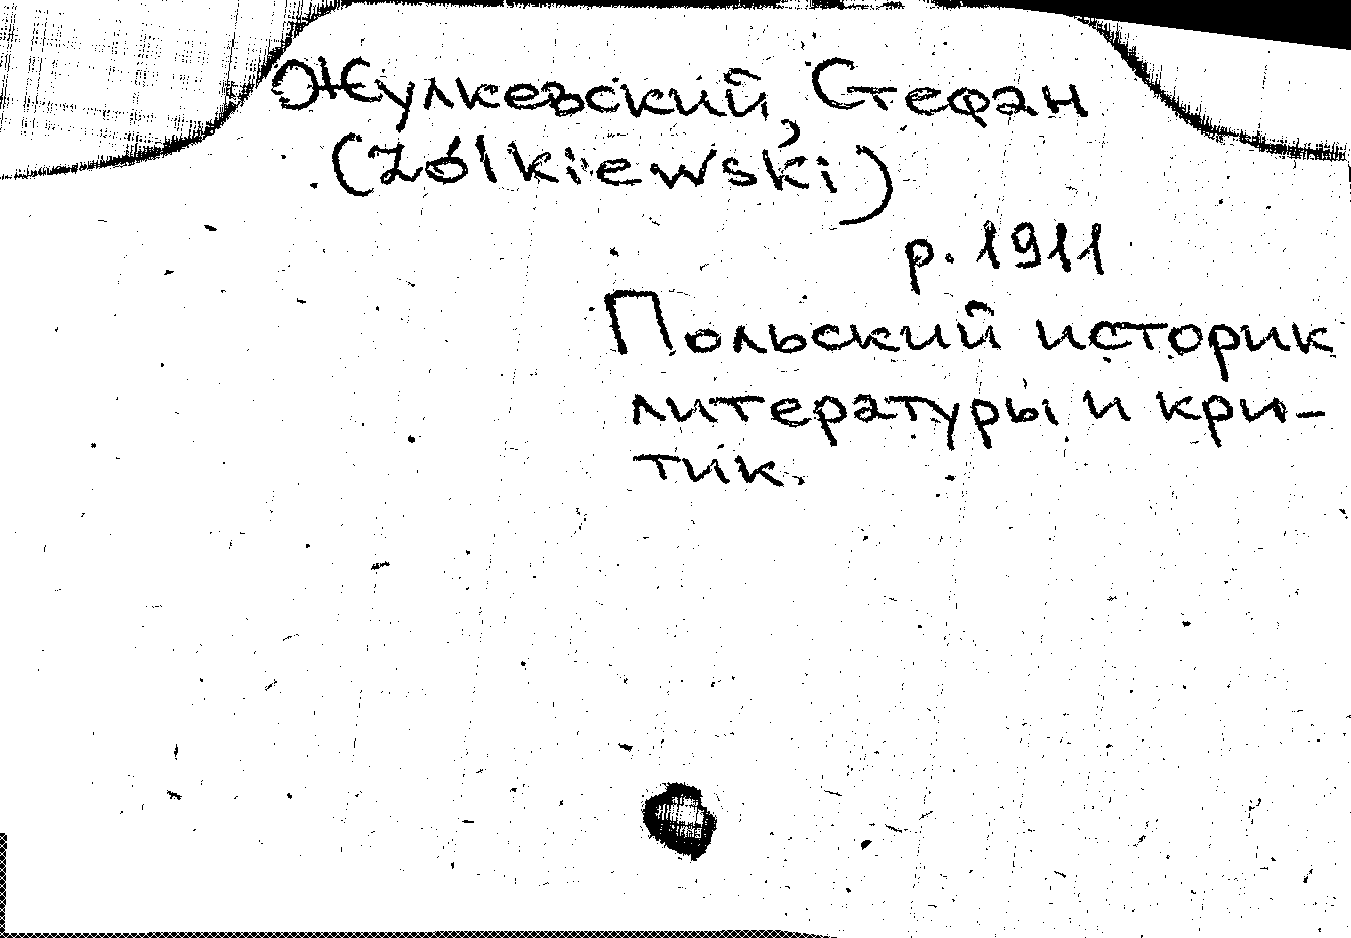 Жулкевский, Стефан
(Żółkiewski)
р. 1911
Польский историк
литературы и кри-
тик.